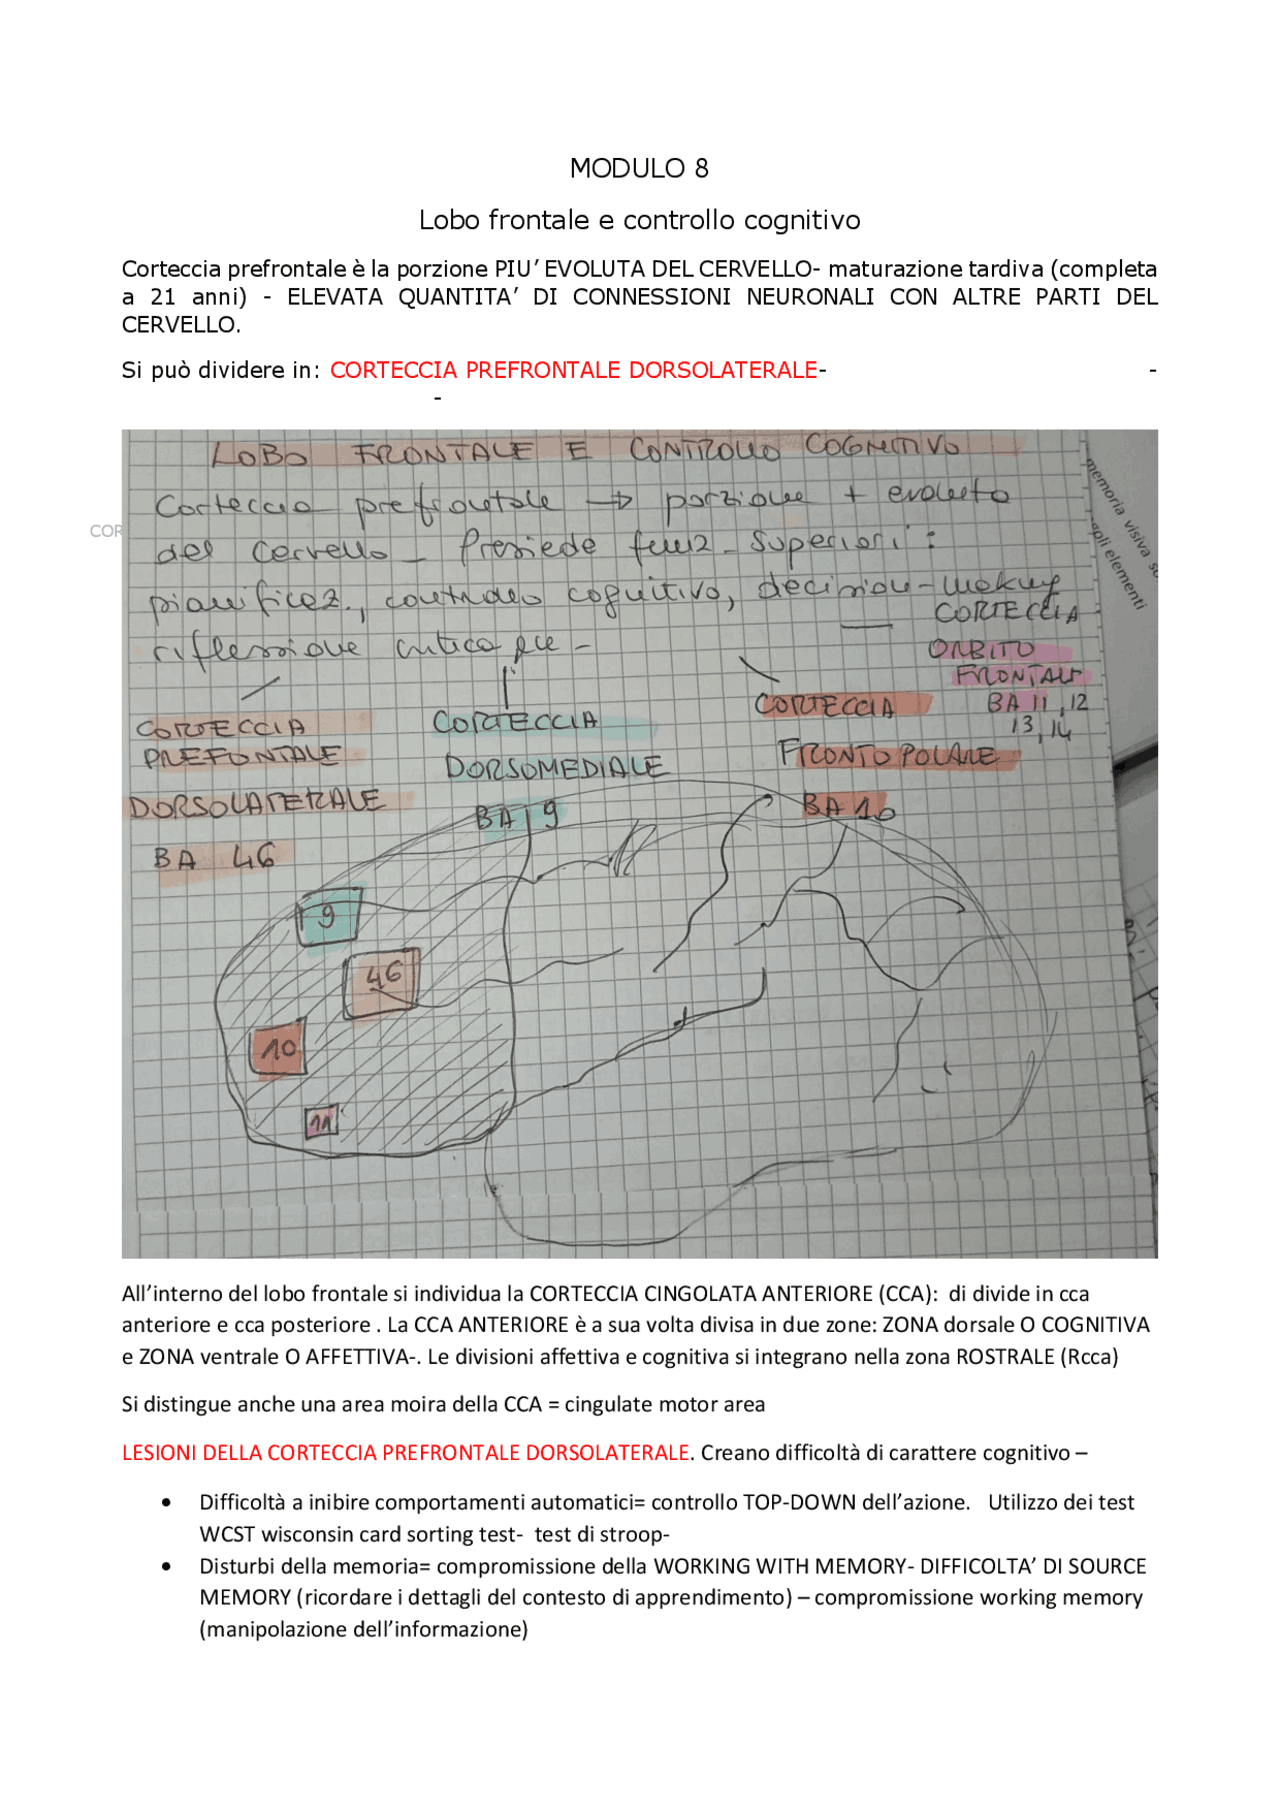 MODULO 8
Lobo frontale e controllo cognitivo
Corteccia prefrontale è la porzione PIU’ EVOLUTA DEL CERVELLO- maturazione tardiva (completa
a 21 anni) - ELEVATA QUANTITA’ DI CONNESSIONI NEURONALI CON ALTRE PARTI DEL
CERVELLO.
Si può dividere in: CORTECCIA PREFRONTALE DORSOLATERALE- -
-
COR
LOBO FRONTALE E CONTROLLO COGNITIVO
Corteccia prefrontale → porzione + evoluta
del cervello - Presiede funz. superiori :
pianificaz., controllo cognitivo, decision-making
riflessione critica ecc -
memoria visiva
gli elementi
CORTECCIA
ORBITO
FRONTALE
BA 11, 12
13, 14
CORTECCIA
PREFONTALE
DORSOLATERALE
BA 46
CORTECCIA
DORSOMEDIALE
BA 9
CORTECCIA
FRONTOPOLARE
BA 10
9
46
10
11
All’interno del lobo frontale si individua la CORTECCIA CINGOLATA ANTERIORE (CCA): di divide in cca
anteriore e cca posteriore . La CCA ANTERIORE è a sua volta divisa in due zone: ZONA dorsale O COGNITIVA
e ZONA ventrale O AFFETTIVA-. Le divisioni affettiva e cognitiva si integrano nella zona ROSTRALE (Rcca)
Si distingue anche una area moira della CCA = cingulate motor area
LESIONI DELLA CORTECCIA PREFRONTALE DORSOLATERALE. Creano difficoltà di carattere cognitivo –
• Difficoltà a inibire comportamenti automatici= controllo TOP-DOWN dell’azione. Utilizzo dei test
WCST wisconsin card sorting test- test di stroop-
• Disturbi della memoria= compromissione della WORKING WITH MEMORY- DIFFICOLTA’ DI SOURCE
MEMORY (ricordare i dettagli del contesto di apprendimento) – compromissione working memory
(manipolazione dell’informazione)